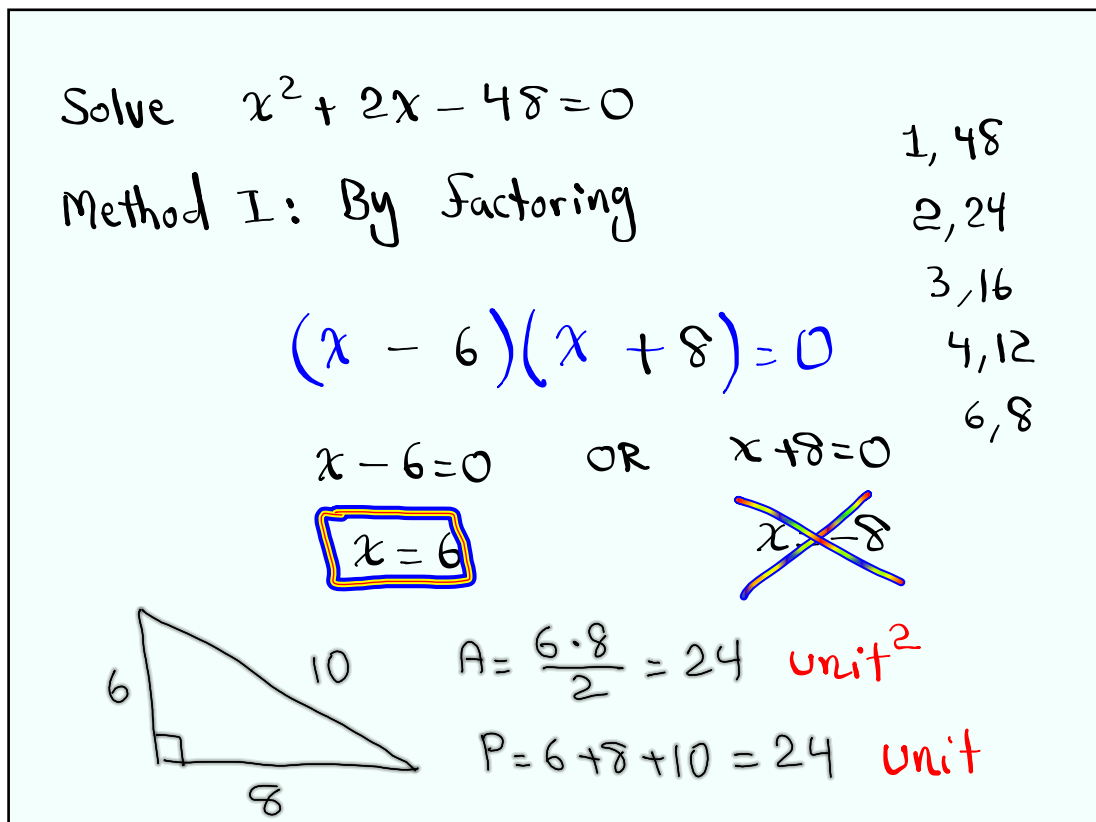 Solve x² + 2x - 48 = 0
1, 48
Method I: By factoring
2, 24
3, 16
(x - 6)(x + 8) = 0
4, 12
6, 8
x - 6 = 0 OR x + 8 = 0
x = 6
x = -8
6
10
8
A = (6·8)/2 = 24 unit²
P = 6 + 8 + 10 = 24 unit